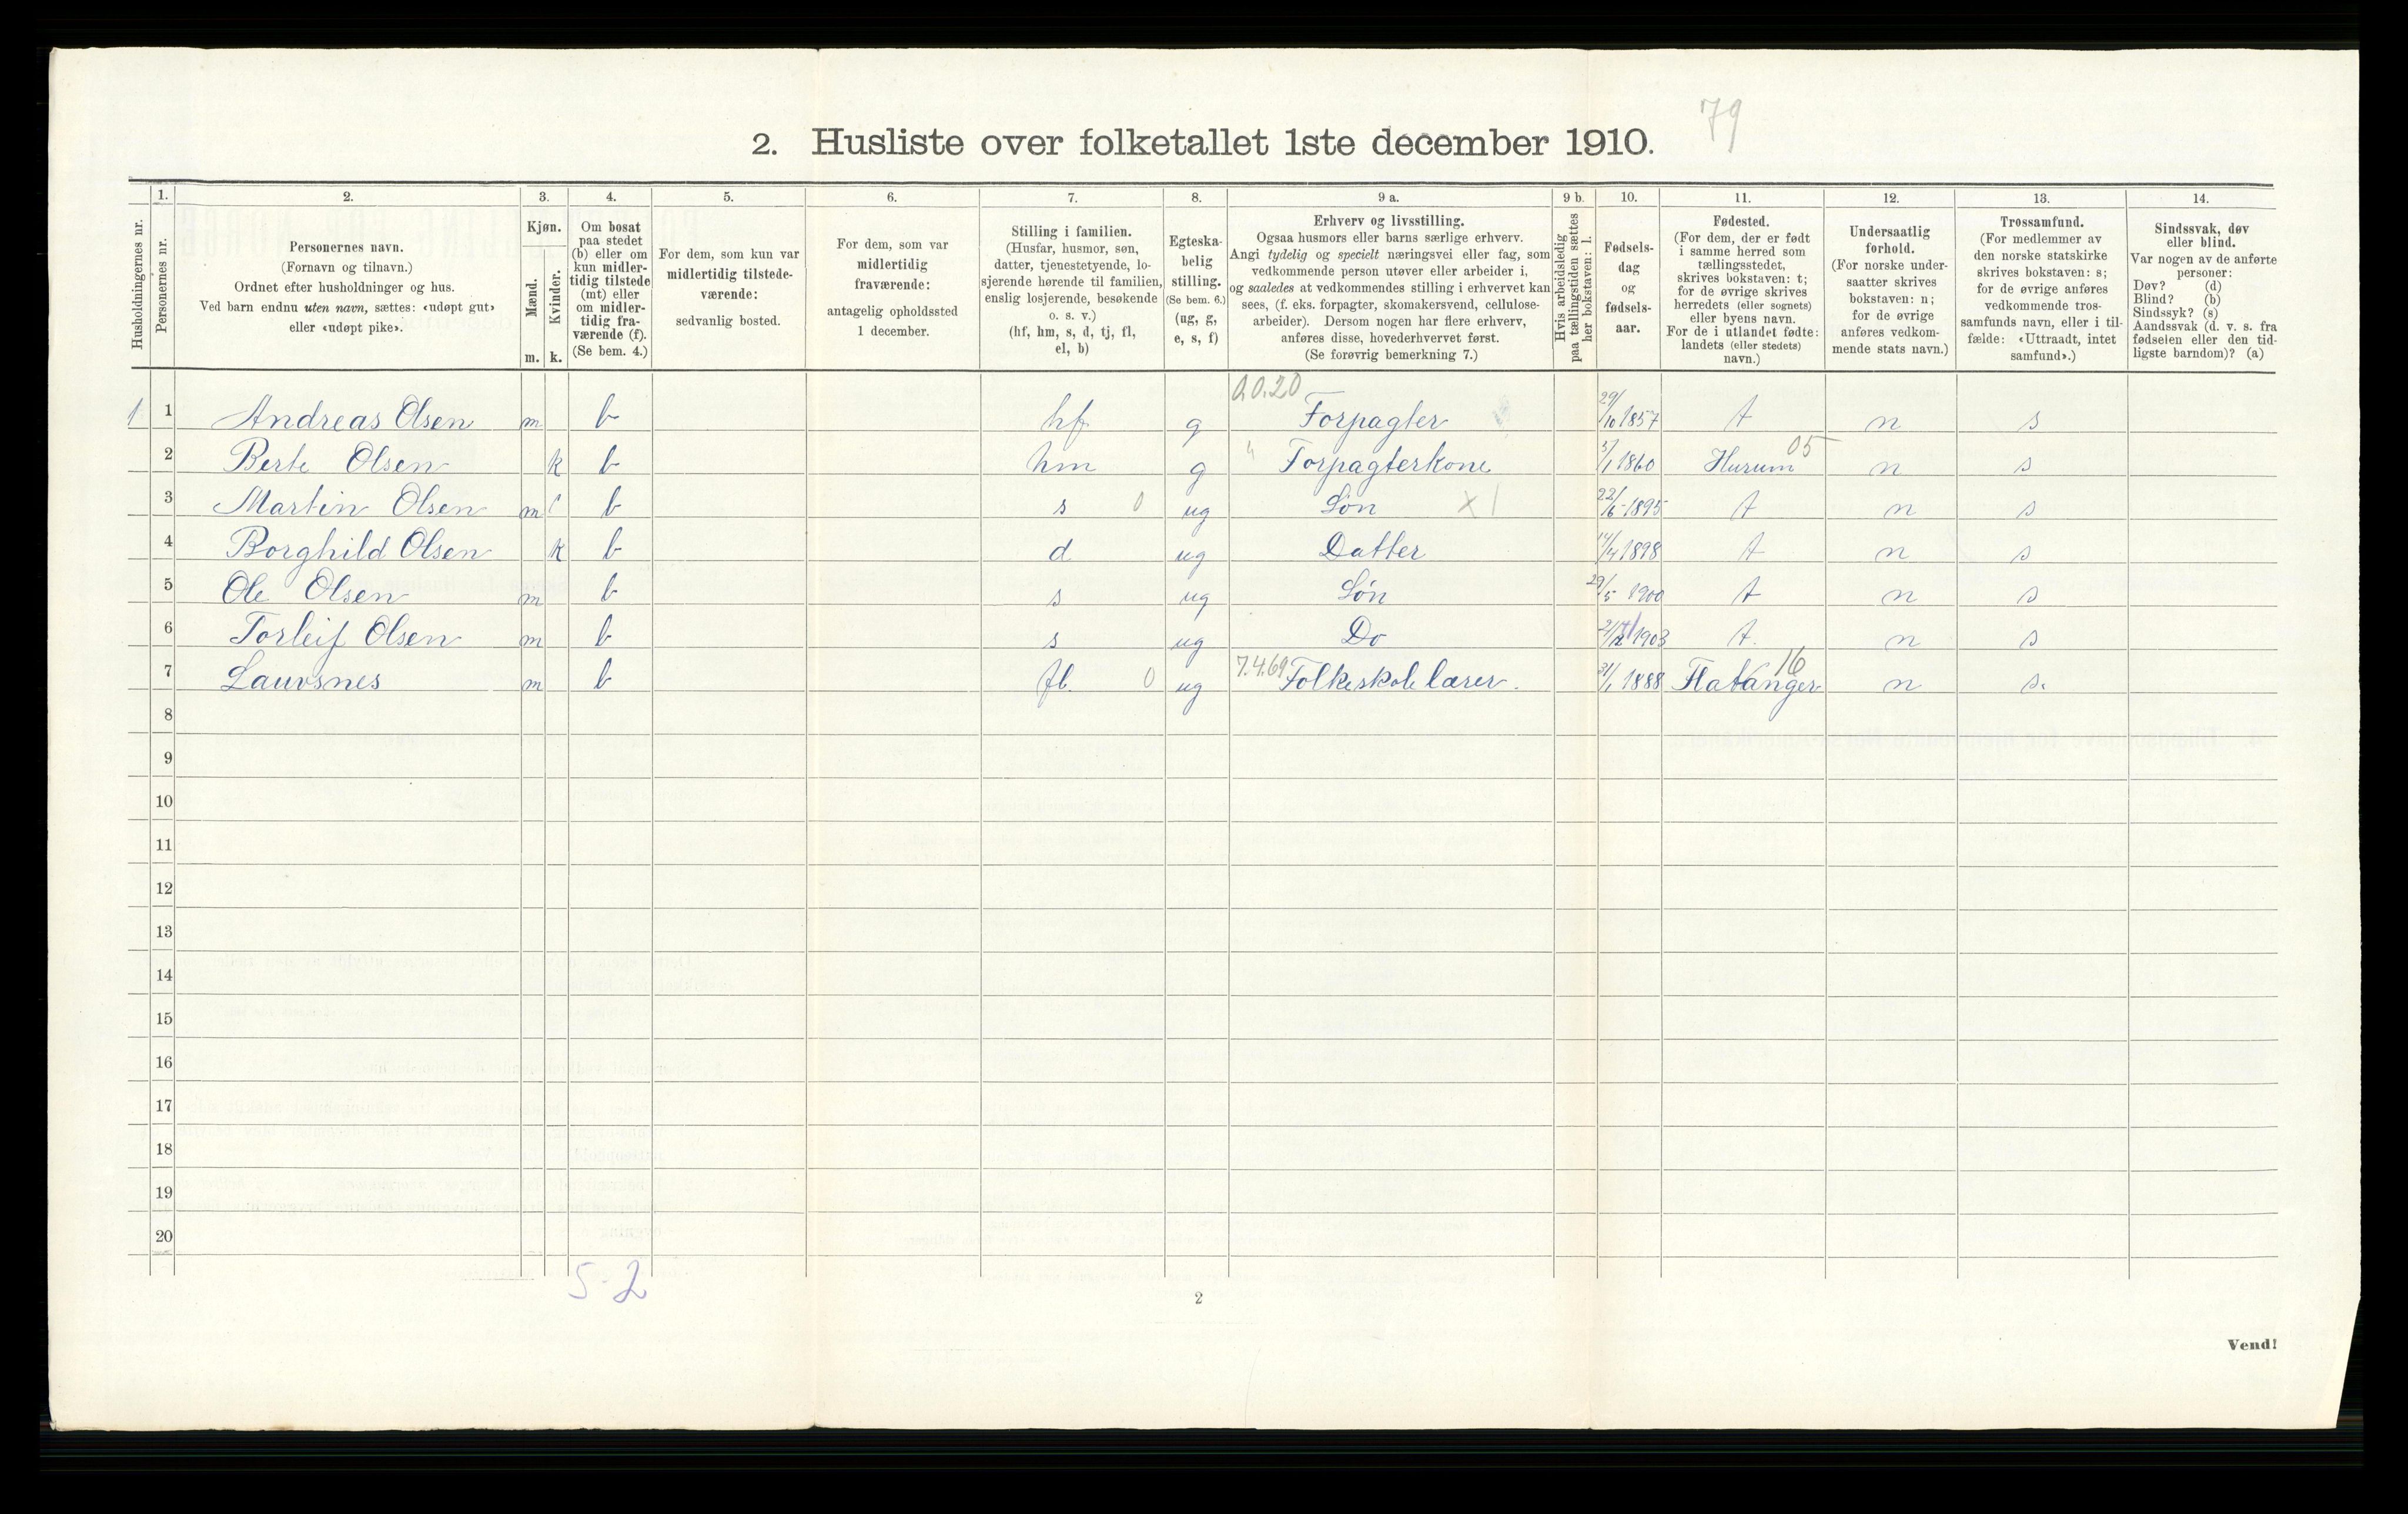 79
2. Husliste over folketallet 1ste december 1910.
Husholdningernes nr.
1.
Personernes nr.
2.
Personernes navn.
(Fornavn og tilnavn.)
Ordnet efter husholdninger og hus.
Ved barn endnu uten navn, sættes: «udøpt gut»
eller «udøpt pike».
3.
Kjøn.
Mænd.
Kvinder.
m. k.
4.
Om bosat
paa stedet
(b) eller om
kun midler-
tidig tilstede
(mt) eller
om midler-
tidig fra-
værende (f).
(Se bem. 4.)
5.
For dem, som kun var
midlertidig tilstede-
værende:
sedvanlig bosted.
6.
For dem, som var
midlertidig
fraværende:
antagelig opholdssted
1 december.
7.
Stilling i familien.
(Husfar, husmor, søn,
datter, tjenestetyende, lo-
sjerende hørende til familien,
enslig losjerende, besøkende
o. s. v.)
(hf, hm, s, d, tj, fl,
el, b)
8.
Egteska-
belig
stilling.
(Se bem. 6.)
(ug, g,
e, s, f)
9 a.
Erhverv og livsstilling.
Ogsaa husmors eller barns særlige erhverv.
Angi tydelig og specielt næringsvei eller fag, som
vedkommende person utøver eller arbeider i,
og saaledes at vedkommendes stilling i erhvervet kan
sees, (f. eks. forpagter, skomakersvend, cellulose-
arbeider). Dersom nogen har flere erhverv,
anføres disse, hovederhvervet først.
(Se forøvrig bemerkning 7.)
9 b.
Hvis arbeidsledig
paa tællingstiden sættes
her bokstaven: l.
10.
Fødsels-
dag
og
fødsels-
aar.
11.
Fødested.
(For dem, der er født
i samme herred som
tællingsstedet,
skrives bokstaven: t;
for de øvrige skrives
herredets (eller sognets)
eller byens navn.
For de i utlandet fødte:
landets (eller stedets)
navn.)
12.
Undersaatlig
forhold.
(For norske under-
saatter skrives
bokstaven: n;
for de øvrige
anføres vedkom-
mende stats navn.)
13.
Trossamfund.
(For medlemmer av
den norske statskirke
skrives bokstaven: s;
for de øvrige anføres
vedkommende tros-
samfunds navn, eller i til-
fælde: «Uttraadt, intet
samfund».)
14.
Sindssvak, døv
eller blind.
Var nogen av de anførte
personer:
Døv? (d)
Blind? (b)
Sindssyk? (s)
Aandssvak (d. v. s. fra
fødselen eller den tid-
ligste barndom)? (a)
0.0.20
1 1 Andreas Olsen m b hf g Forpagter 29/10 1857 t n s
2 Berte Olsen k b hm g " Forpagterkone 1860 Hurum 05 n s
3 Martin Olsen m b s 0 ug Søn X 1 22/6 1895 t n s
4 Borghild Olsen k b d ug Datter 14/4 1898 t n s
5 Ole Olsen m b s ug Søn 29/5 1900 t n s
6 Torleif Olsen m b s ug Do 1903 t. n s
7 Lauvsnes m b fl. 0 ug 7.4.69 Folkeskolelærer. 31/1 1888 Flatanger 16 n s.
8
9
10
11
12
13
14
15
16
17
18
19
20
5-2
2
Vend!